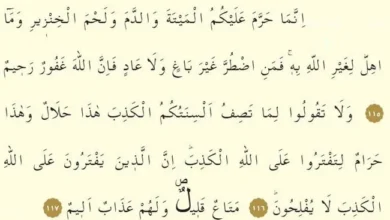 اِنَّمَا حَرَّمَ عَلَيْكُمُ الْمَيْتَةَ وَالدَّمَ وَلَحْمَ الْخِنْز۪يرِ وَمَٓا
اُهِلَّ لِغَيْرِ اللّٰهِ بِه۪ۚ فَمَنِ اضْطُرَّ غَيْرَ بَاغٍ وَلَا عَادٍ فَاِنَّ اللّٰهَ غَفُورٌ رَح۪يمٌ
﴿١١٥﴾ وَلَا تَقُولُوا لِمَا تَصِفُ اَلْسِنَتُكُمُ الْكَذِبَ هٰذَا حَلَالٌ وَهٰذَا
حَرَامٌ لِتَفْتَرُوا عَلَى اللّٰهِ الْكَذِبَۜ اِنَّ الَّذ۪ينَ يَفْتَرُونَ عَلَى اللّٰهِ
الْكَذِبَ لَا يُفْلِحُونَۜ ﴿١١٦﴾ مَتَاعٌ قَل۪يلٌۖ وَلَهُمْ عَذَابٌ اَل۪يمٌ ﴿١١٧﴾